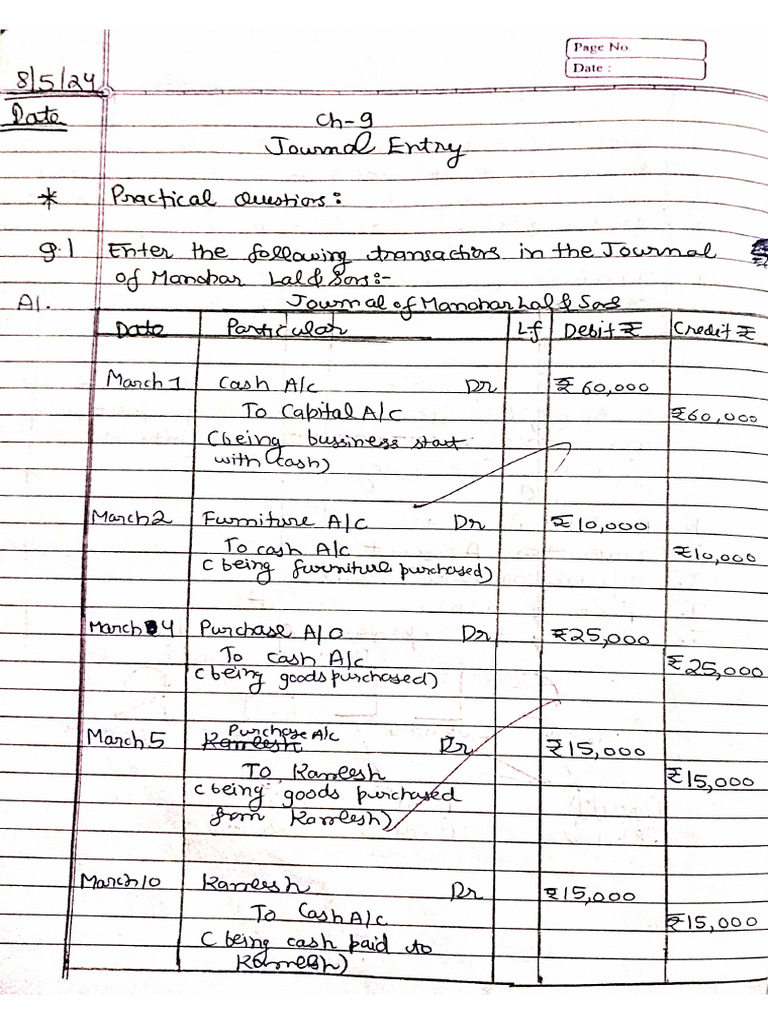 Page No.
Date :
8/5/24
Date
Ch-9
Journal Entry
* Practical Questions:
Q.1 Enter the following transactions in the Journal
of Manohar Lal & Sons:-
A1. Journal of Manohar Lal & Sons
Date Particular Lf Debit ₹ Credit ₹
March 1 Cash A/c Dr ₹ 60,000
To Capital A/c ₹60,000
(being bussiness start
with cash)
March 2 Furniture A/c Dr ₹10,000
To cash A/c ₹10,000
(being furniture purchased)
March 4 Purchase A/c Dr ₹25,000
To cash A/c ₹25,000
(being goods purchased)
Purchase A/c
March 5 Kamlesh Dr ₹15,000
To Kamlesh ₹15,000
(being goods purchased
from Kamlesh)
March 10 Kamlesh Dr ₹15,000
To Cash A/c ₹15,000
(being cash paid to
Kamlesh)